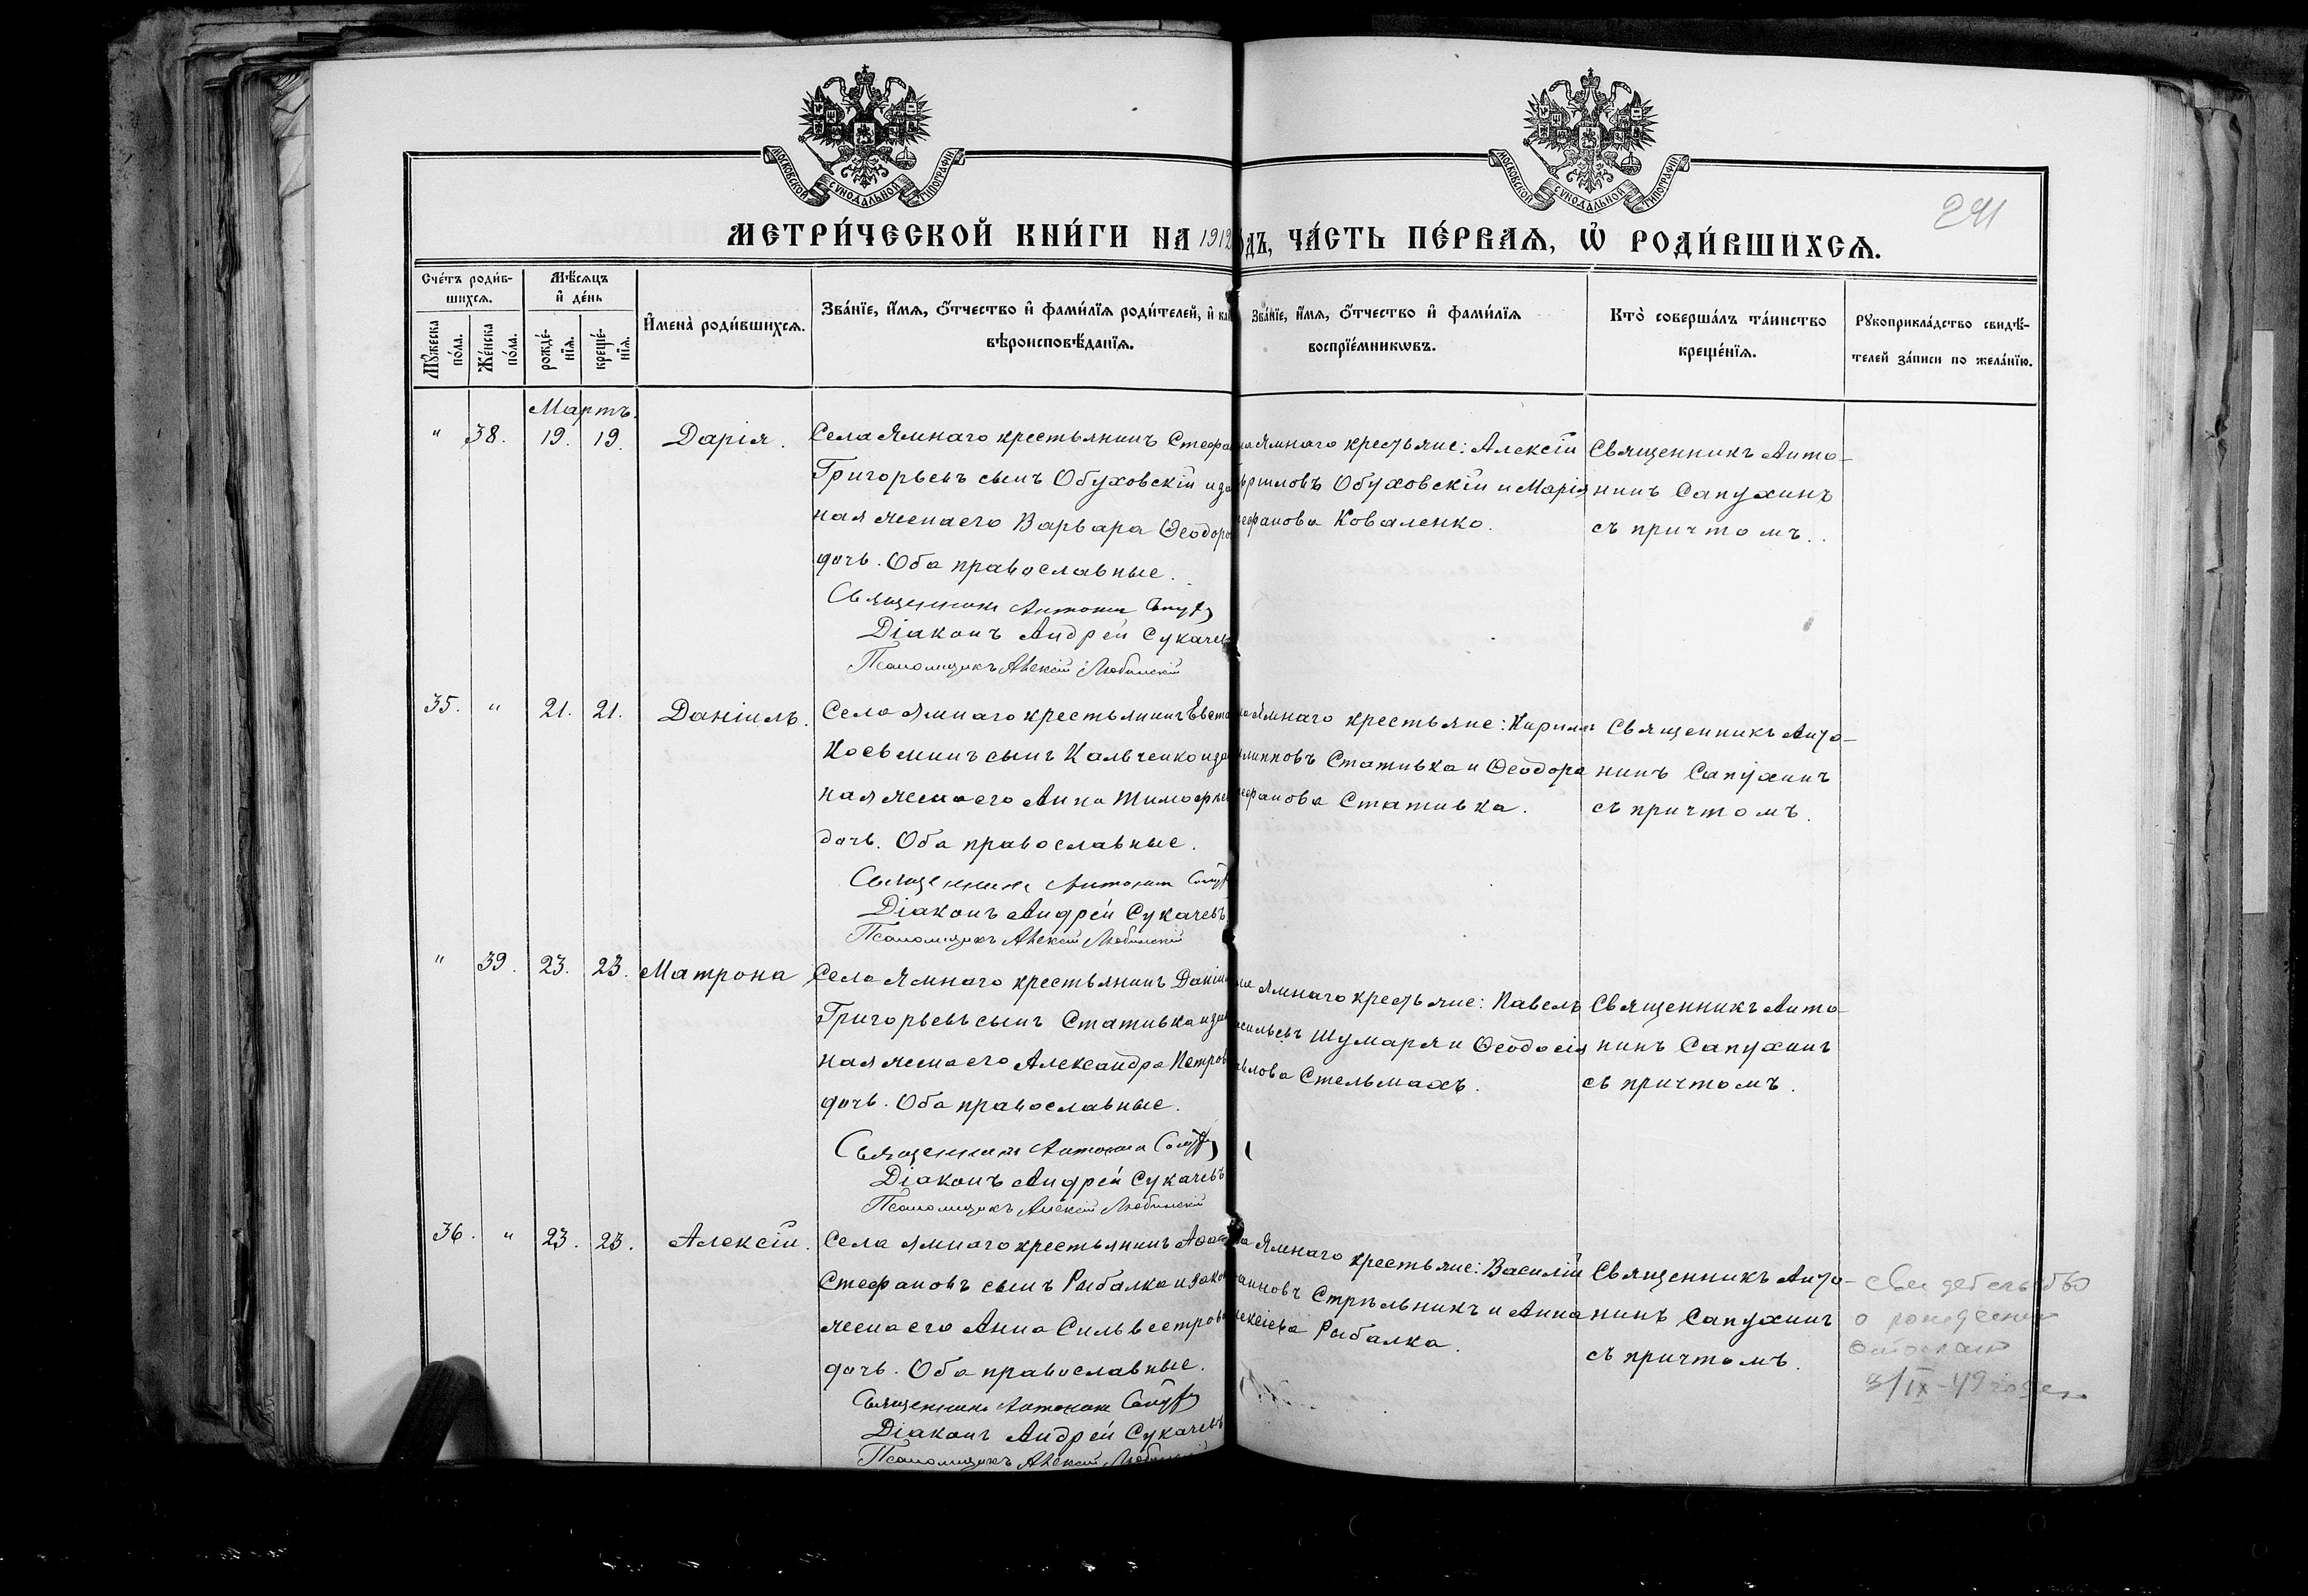 МОСКОВСКОЙ СѴНОДАЛЬНОЙ ТИПОГРАФІИ
МОСКОВСКОЙ СѴНОДАЛЬНОЙ ТИПОГРАФІИ
241
МЕТРИ́ЧЕСКОЙ КНИ́ГИ НА 1912
ДЪ, ЧА́СТЬ ПЕ́РВАЯ, Ѡ҆ РОДИ́ВШИХСЯ.
Сче́тъ роди́в-
шихся.
Мѣ́сяцъ
и҆ де́нь
Мꙋ́жеска
по́ла.
Же́нска
по́ла.
рожде́-
нїя.
креще́-
нїя.
И҆мена̀ роди́вшихся.
Зва́нїе, и҆́мя, ѻ҆́тчество и҆ фами́лїя роди́телей, и҆
вѣроисповѣ́данїя.
Зва́нїе, и҆́мя, ѻ҆́тчество и҆ фами́лїя
воспрїе́мникѡвъ.
Кто̀ соверша́лъ та́инство
креще́нїя.
Рꙋкоприкла́дство свидѣ́-
телей за́писи по жела́нїю.
Мартъ.
" 38. 19. 19. Дарія.
Села Ямнаго крестьянинъ Стефа
Григорьевъ сынъ Обуховскій и за
ная жена его Варвара Ѳеодоро
дочь. Оба православные.
Священникъ Антонин
Діаконъ Андрей Сукачев
Псаломщикъ Алексій Любинскій
на Ямнаго крестьяне: Алексій
риловъ Обуховскій и Марія
ефанова Коваленко.
Священникъ Анто-
нинъ Сапухинъ
съ причтомъ.
35. " 21. 21. Даніилъ.
Села Ямнаго крестьянинъ Евста
Косьминъ сынъ Кальченко и за
ная жена его Анна Тимофѣе
дочь. Оба православные.
Священникъ Антонин
Діаконъ Андрей Сукачевъ
Псаломщикъ Алексій Любинскій
ла Ямнаго крестьяне: Кириллъ
липповъ Стативка и Ѳеодора
ефанова Стативка.
Священникъ Анто-
нинъ Сапухинъ
съ причтомъ.
" 39. 23. 23. Матрона
Села Ямнаго крестьянинъ Даніи
Григорьевъ сынъ Стативка и зак
ная жена его Александра Петров
дочь. Оба православные.
Священникъ Антонин
Діаконъ Андрей Сукачевъ
Псаломщикъ Алексій Любинскій
ла Ямнаго крестьяне: Павелъ
сильевъ Шумаря и Ѳеодосія
влова Стельмахъ.
Священникъ Анто-
нинъ Сапухинъ
съ причтомъ.
36. " 23. 23. Алексій.
Села Ямнаго крестьянинъ
Стефановъ сынъ Рыбалка и зако
жена его Анна Сильвестрова
дочь. Оба православные.
Священникъ Антонин
Діаконъ Андрей Сукачевъ
Псаломщикъ Алексій
ла Ямнаго крестьяне: Василій
Стрѣльникъ и Анна
лексіева Рыбалка.
Священникъ Анто-
нинъ Сапухинъ
съ причтомъ.
Свидетельство
о рождении
3/IX-49 года